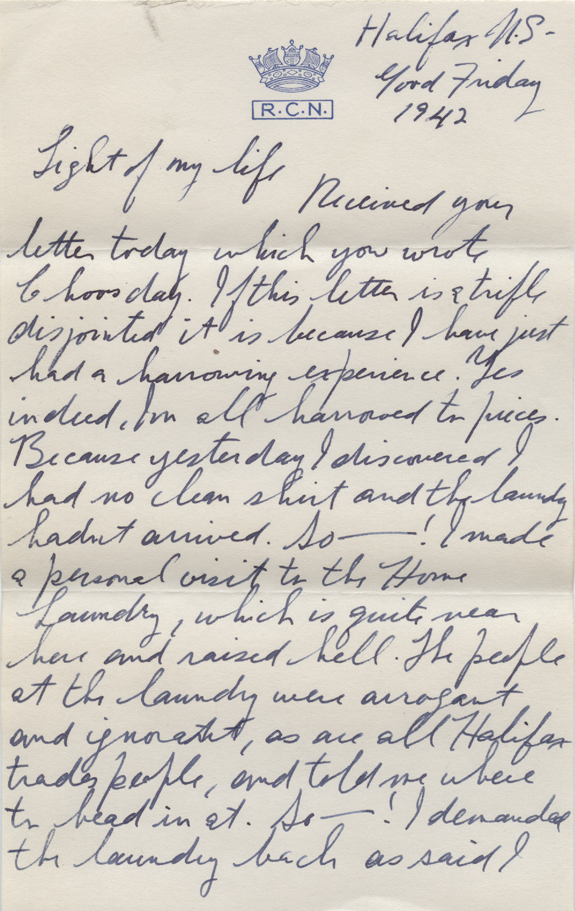 Halifax N.S-
Good Friday
1942
R.C.N.
Light of my life
Received your
letter today which you wrote
Choosday. If this letter is a trifle
disjointed it is because I have just
had a harrowing experience. Yes
indeed, Im all harrowed to pieces.
Because yesterday I discovered I
had no clean shirt and the laundy
hadnt arrived. So——! I made
a personal visit to the Home
Laundry, which is quite near
here and raised hell. The people
at the laundry were arrogant
and ignorant, as are all Halifax
tradespeople, and told me where
to head in at. So——! I demanded
the laundry back as said I